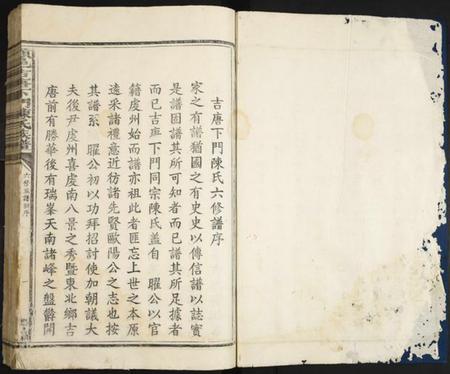 吉唐下門陳氏六修譜序
家之有譜猶國之有史史以傳信譜以誌實
是譜固譜其所可知者而已譜其所足據者
而已吉唐下門同宗陳氏蓋自 曜公以官
籍虔州始而譜亦祖此者匪忘上世之本原
遠采諸禮意近彷諸先賢歐陽公之志也按
其譜系 曜公初以功拜招討使加朝議大
夫後尹虔州喜虔南八景之秀暨東北鄉吉
唐前有勝華後有瑞峯天南諸峰之盤欝開
陳氏族譜
六修族譜 序
一